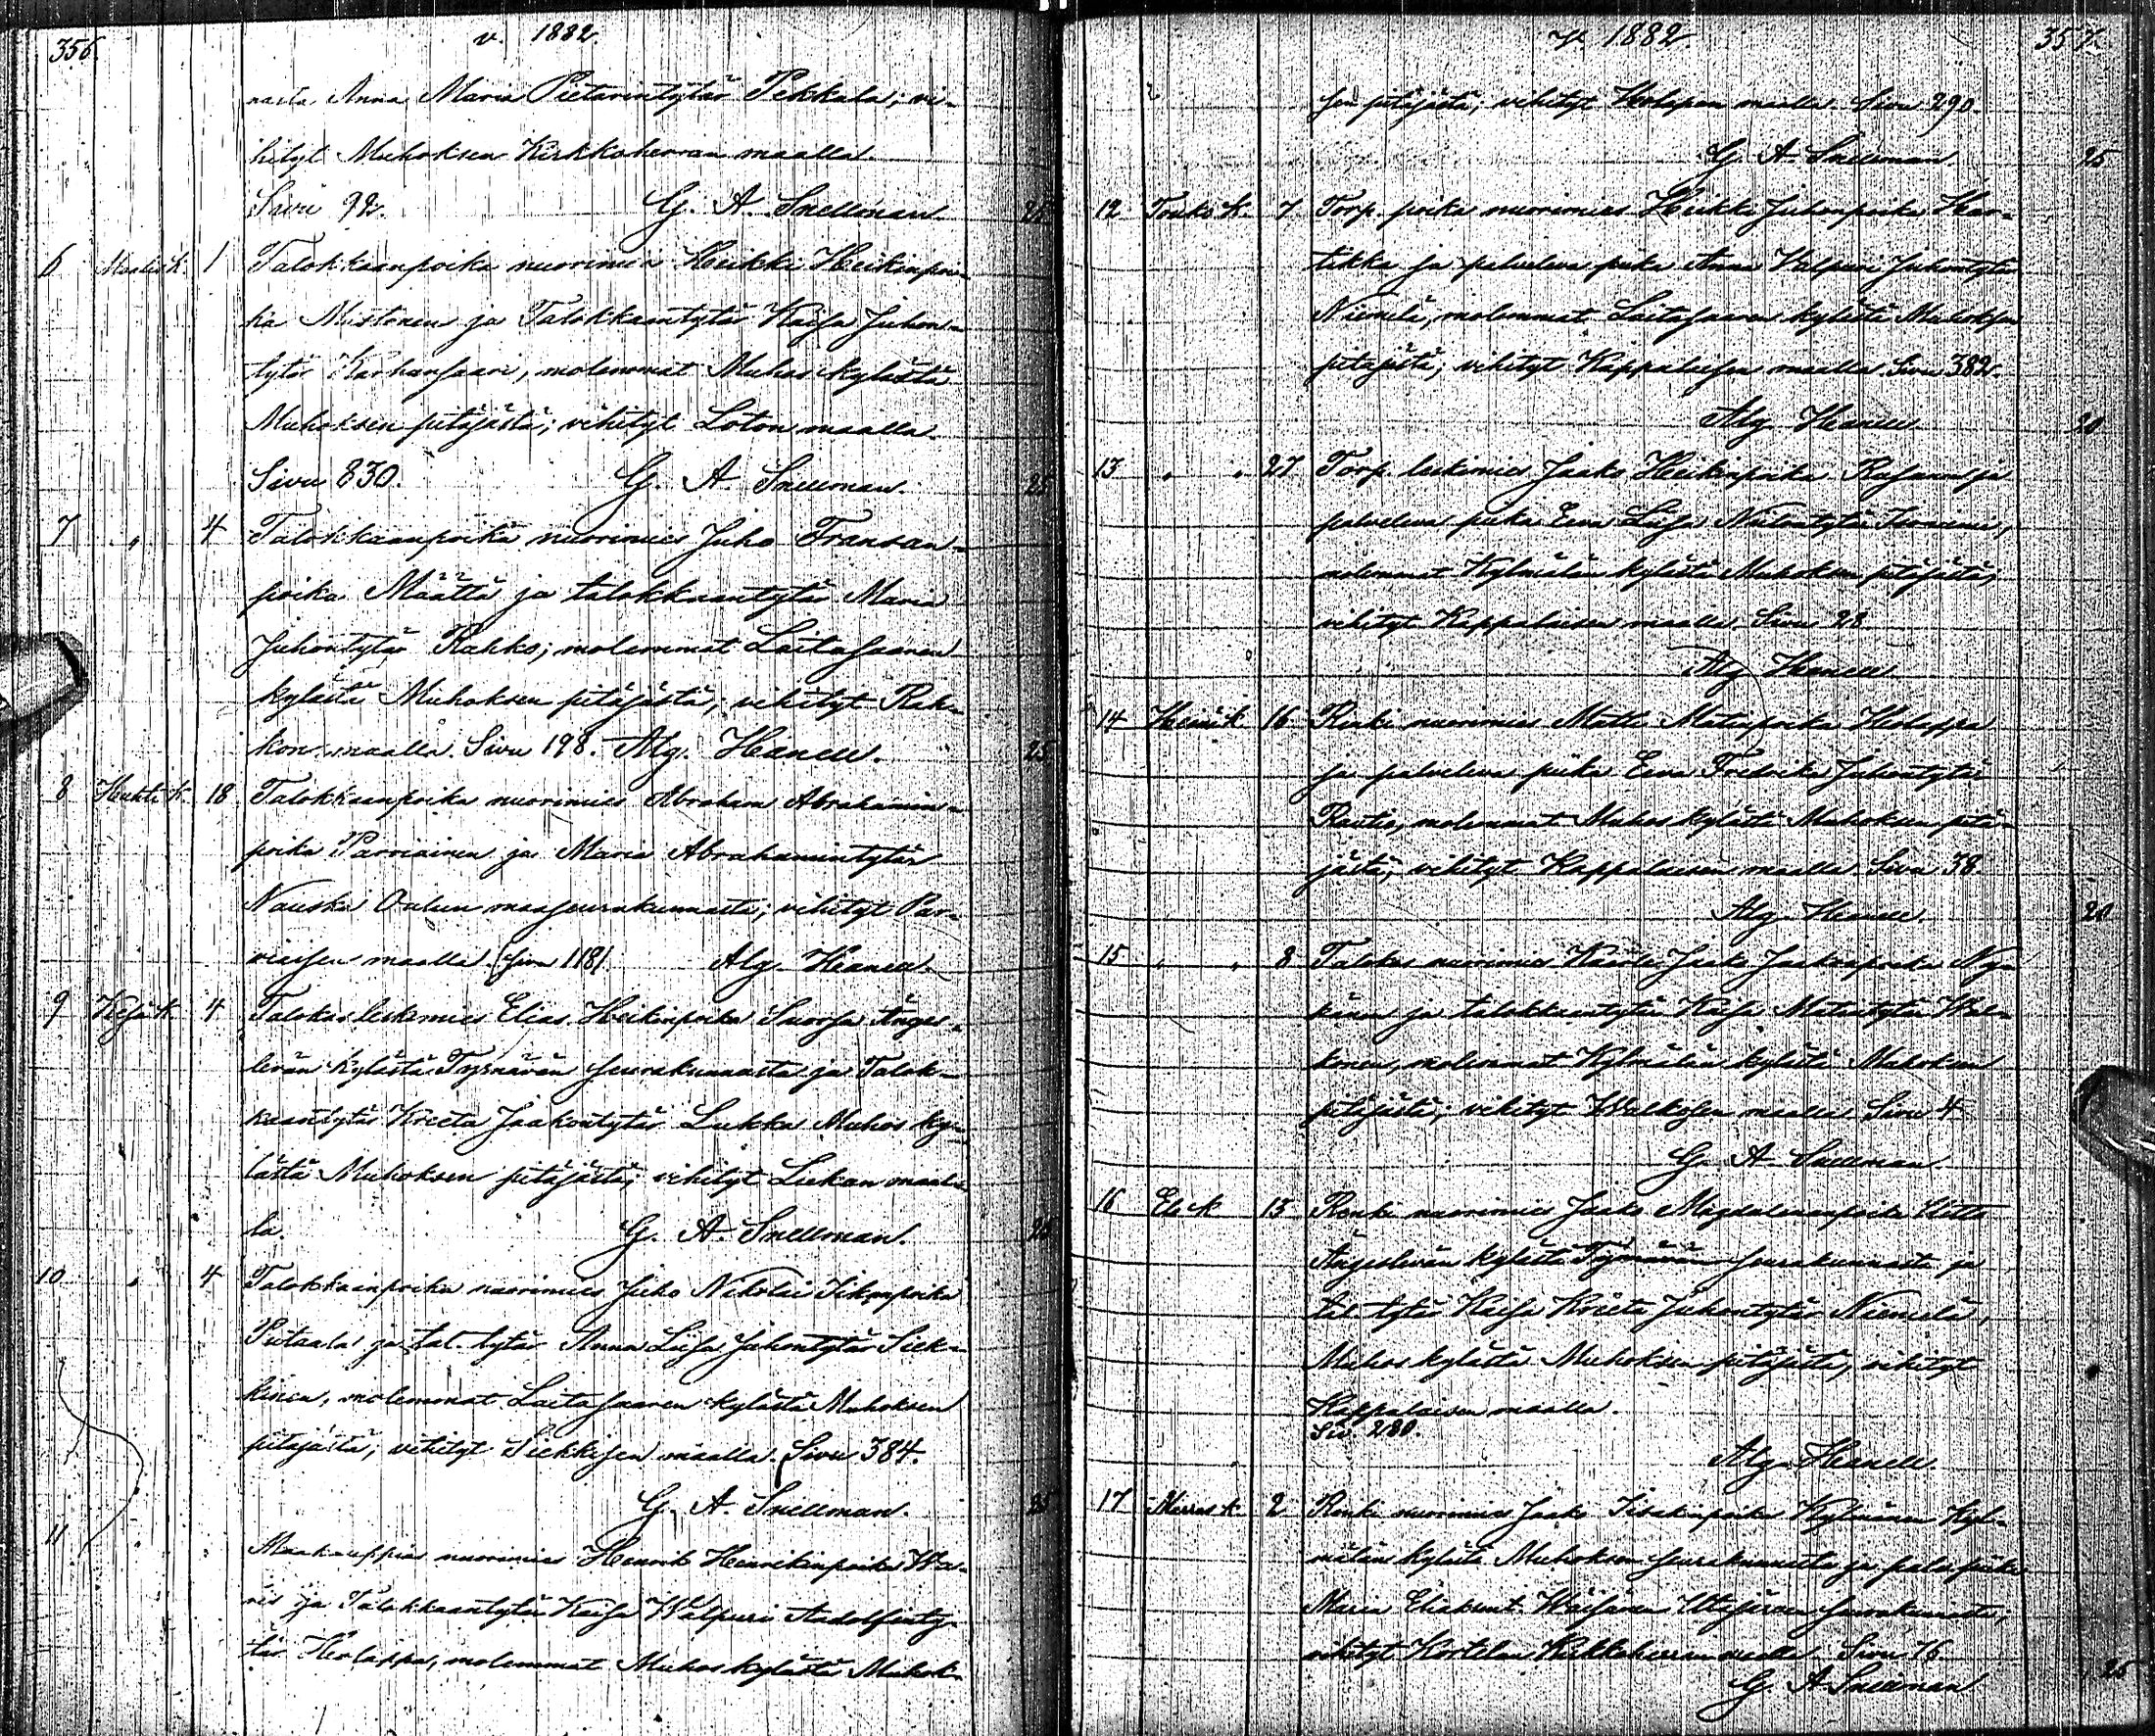 356.
v. 1882.
nasta Anna Maria Pietarintytär Pekkala; vi-
hityt Muhoksen Kirkkoherran maalla.
Sivu 92. G. A. Snellman. 25
6 Maalisk. 1 Talokkaanpoika nuorimies Heikki Heikinpoi-
ka Mustonen ja Talokkaantytär Kaisa Juhon-
tytär Karhunsaari, molemmat Muhos kylästä
Muhoksen pitäjästä; vihityt Loton maalla.
Sivu 830. G. A. Snellman. 25
7 " 4 Talokkaanpoika nuorimies Juho Fransan-
poika Määttä ja talokkaantytär Maria
Juhontytär Rahko; molemmat Laitasaaren
kylästä Muhoksen pitäjästä; vihityt Rah-
kon maalla. Sivu 198. Alg. Hanell. 25
8 Huhti k. 18 Talokkaanpoika nuorimies Abraham Abrahamin-
poika Parviainen ja Maria Abrahamintytär
Nauska Oulun maaseurakunnasta; vihityt Par-
viaisen maalla. (Sivu 118) Alg. Hanell.
9 Kesä k. 4 Talokas leskimies Elias Heikinpoika Suorsa Änges-
levän kylästä Tyrnävän seurakunnasta ja Talok-
kaantytär Kreeta Jaakontytär Lukka Muhos ky-
lästä Muhoksen pitäjästä; vihityt Lukan maal-
la. G. A. Snellman. 25
10 " 4 Talokkaanpoika nuorimies Juho Nikolai
ja tal. tytär Anna Liisa Juhontytär Siek-
kinen, molemmat Laitasaaren kylästä Muhoksen
pitäjästä; vihityt Siekkisen maalla. Sivu 384.
G. A. Snellman. 25
11 Maakauppias nuorimies Henrik Henrikinpoika Wa-
ris ja Talokkaantytär Kaisa Walpuri Aadolfinty-
tär Holappa, molemmat Muhos kylästä Muhok-
V. 1882.
357.
sen pitäjästä; vihityt Holapan maalla. Sivu 290.
G. A. Snellman 25
12 Touko k. 7 Torp. poika nuorimies Heikki Juhonpoika Har-
tikka ja palveleva piika Anna Walpuri Juhontytär
Niemelä, molemmat Laitasaaren kylästä Muhoksen
pitäjästä; vihityt Kappalaisen maalla. Sivu 382.
Alg. Hanell 20
13 " " 27 Torp. leskimies Jaako Heikinpoika ja
palveleva piika Eeva Liisa
molemmat Kylmälän kylästä Muhoksen pitäjästä,
vihityt Kappalaisen maalla. Sivu 28
Alg Hanell
14 Heinä k. 16 Renki nuorimies Matti Matinpoika Holappa
ja palveleva piika Eeva Fredrika Juhontytär
Rautio, molemmat Muhos kylästä Muhoksen pitä-
jästä; vihityt Kappalaisen maalla. Sivu 38.
Alg. Hanell. 20
15 " " 8 Talokas nuorimies Kaarle Jaako Jaakonpoika Ny-
känen ja talokkaantytär Kaisa Matintytär Wal-
konen, molemmat Kylmälän kylästä Muhoksen
pitäjästä; vihityt Walkosen maalla. Sivu 4
G. A. Snellman.
16 Elo k 13 Renki nuorimies Jaako Magdalenanpoika
Ängeslevän kylästä Tyrnävän seurakunnasta ja
tal. tytär Kaisa Kreeta Juhontytär Niemelä,
Muhos kylästä Muhoksen pitäjästä, vihityt
Kappalaisen maalla.
Siv. 280.
Alg. Hanell.
17 Marras k. 2 Renki nuorimies Jaako Iisakinpoika Kylmänen Kyl-
mälän kylästä Muhoksen seurakunnasta ja palv. piika
Maria Eliaksent. Väisänen Utajärven seurakunnasta;
vihityt Kortelan Kirkkoherran maalla. Sivu 76
G. A Snellman 25